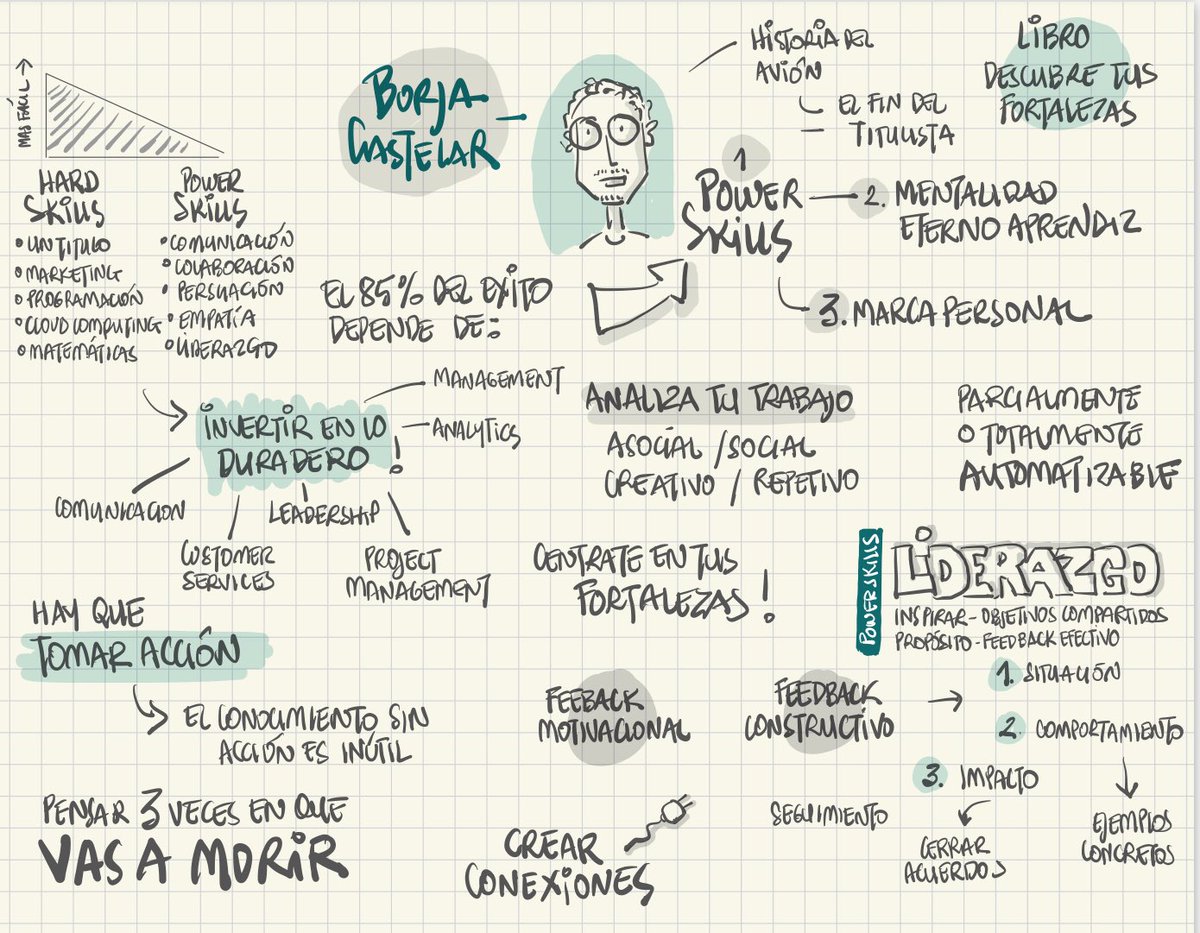 BORJA
CASTELAR
HISTORIA DEL
AVIÓN
EL FIN DEL
TITULISTA
LIBRO
DESCUBRE TUS
FORTALEZAS
MÁS FÁCIL
HARD
SKILLS
• UN TITULO
• MARKETING
• PROGRAMACIÓN
• CLOUD COMPUTING
• MATEMÁTICAS
POWER
SKILLS
• COMUNICACIÓN
• COLABORACIÓN
• PERSUACIÓN
• EMPATÍA
• LIDERAZGO
EL 85% DEL EXITO
DEPENDE DE:
1
POWER
SKILLS
2. MENTALIDAD
ETERNO APRENDIZ
3. MARCA PERSONAL
INVERTIR EN LO
DURADERO!
MANAGEMENT
ANALYTICS
COMUNICACION
CUSTOMER
SERVICES
LEADERSHIP
PROJECT
MANAGEMENT
ANALIZA TU TRABAJO
ASOCIAL / SOCIAL
CREATIVO / REPETIVO
PARCIALMENTE
O TOTALMENTE
AUTOMATIZABLE
CENTRATE EN TUS
FORTALEZAS!
POWERSKILLS
LIDERAZGO
INSPIRAR - OBJETIVOS COMPARTIDOS
PROPÓSITO - FEEDBACK EFECTIVO
HAY QUE
TOMAR ACCIÓN
EL CONOCIMIENTO SIN
ACCIÓN ES INÚTIL
FEEBACK
MOTIVACIONAL
FEEDBACK
CONSTRUCTIVO
1. SITUACIÓN
2. COMPORTAMIENTO
3. IMPACTO
SEGUIMIENTO
CERRAR
ACUERDOS
EJEMPLOS
CONCRETOS
PENSAR 3 VECES EN QUE
VAS A MORIR
CREAR
CONEXIONES